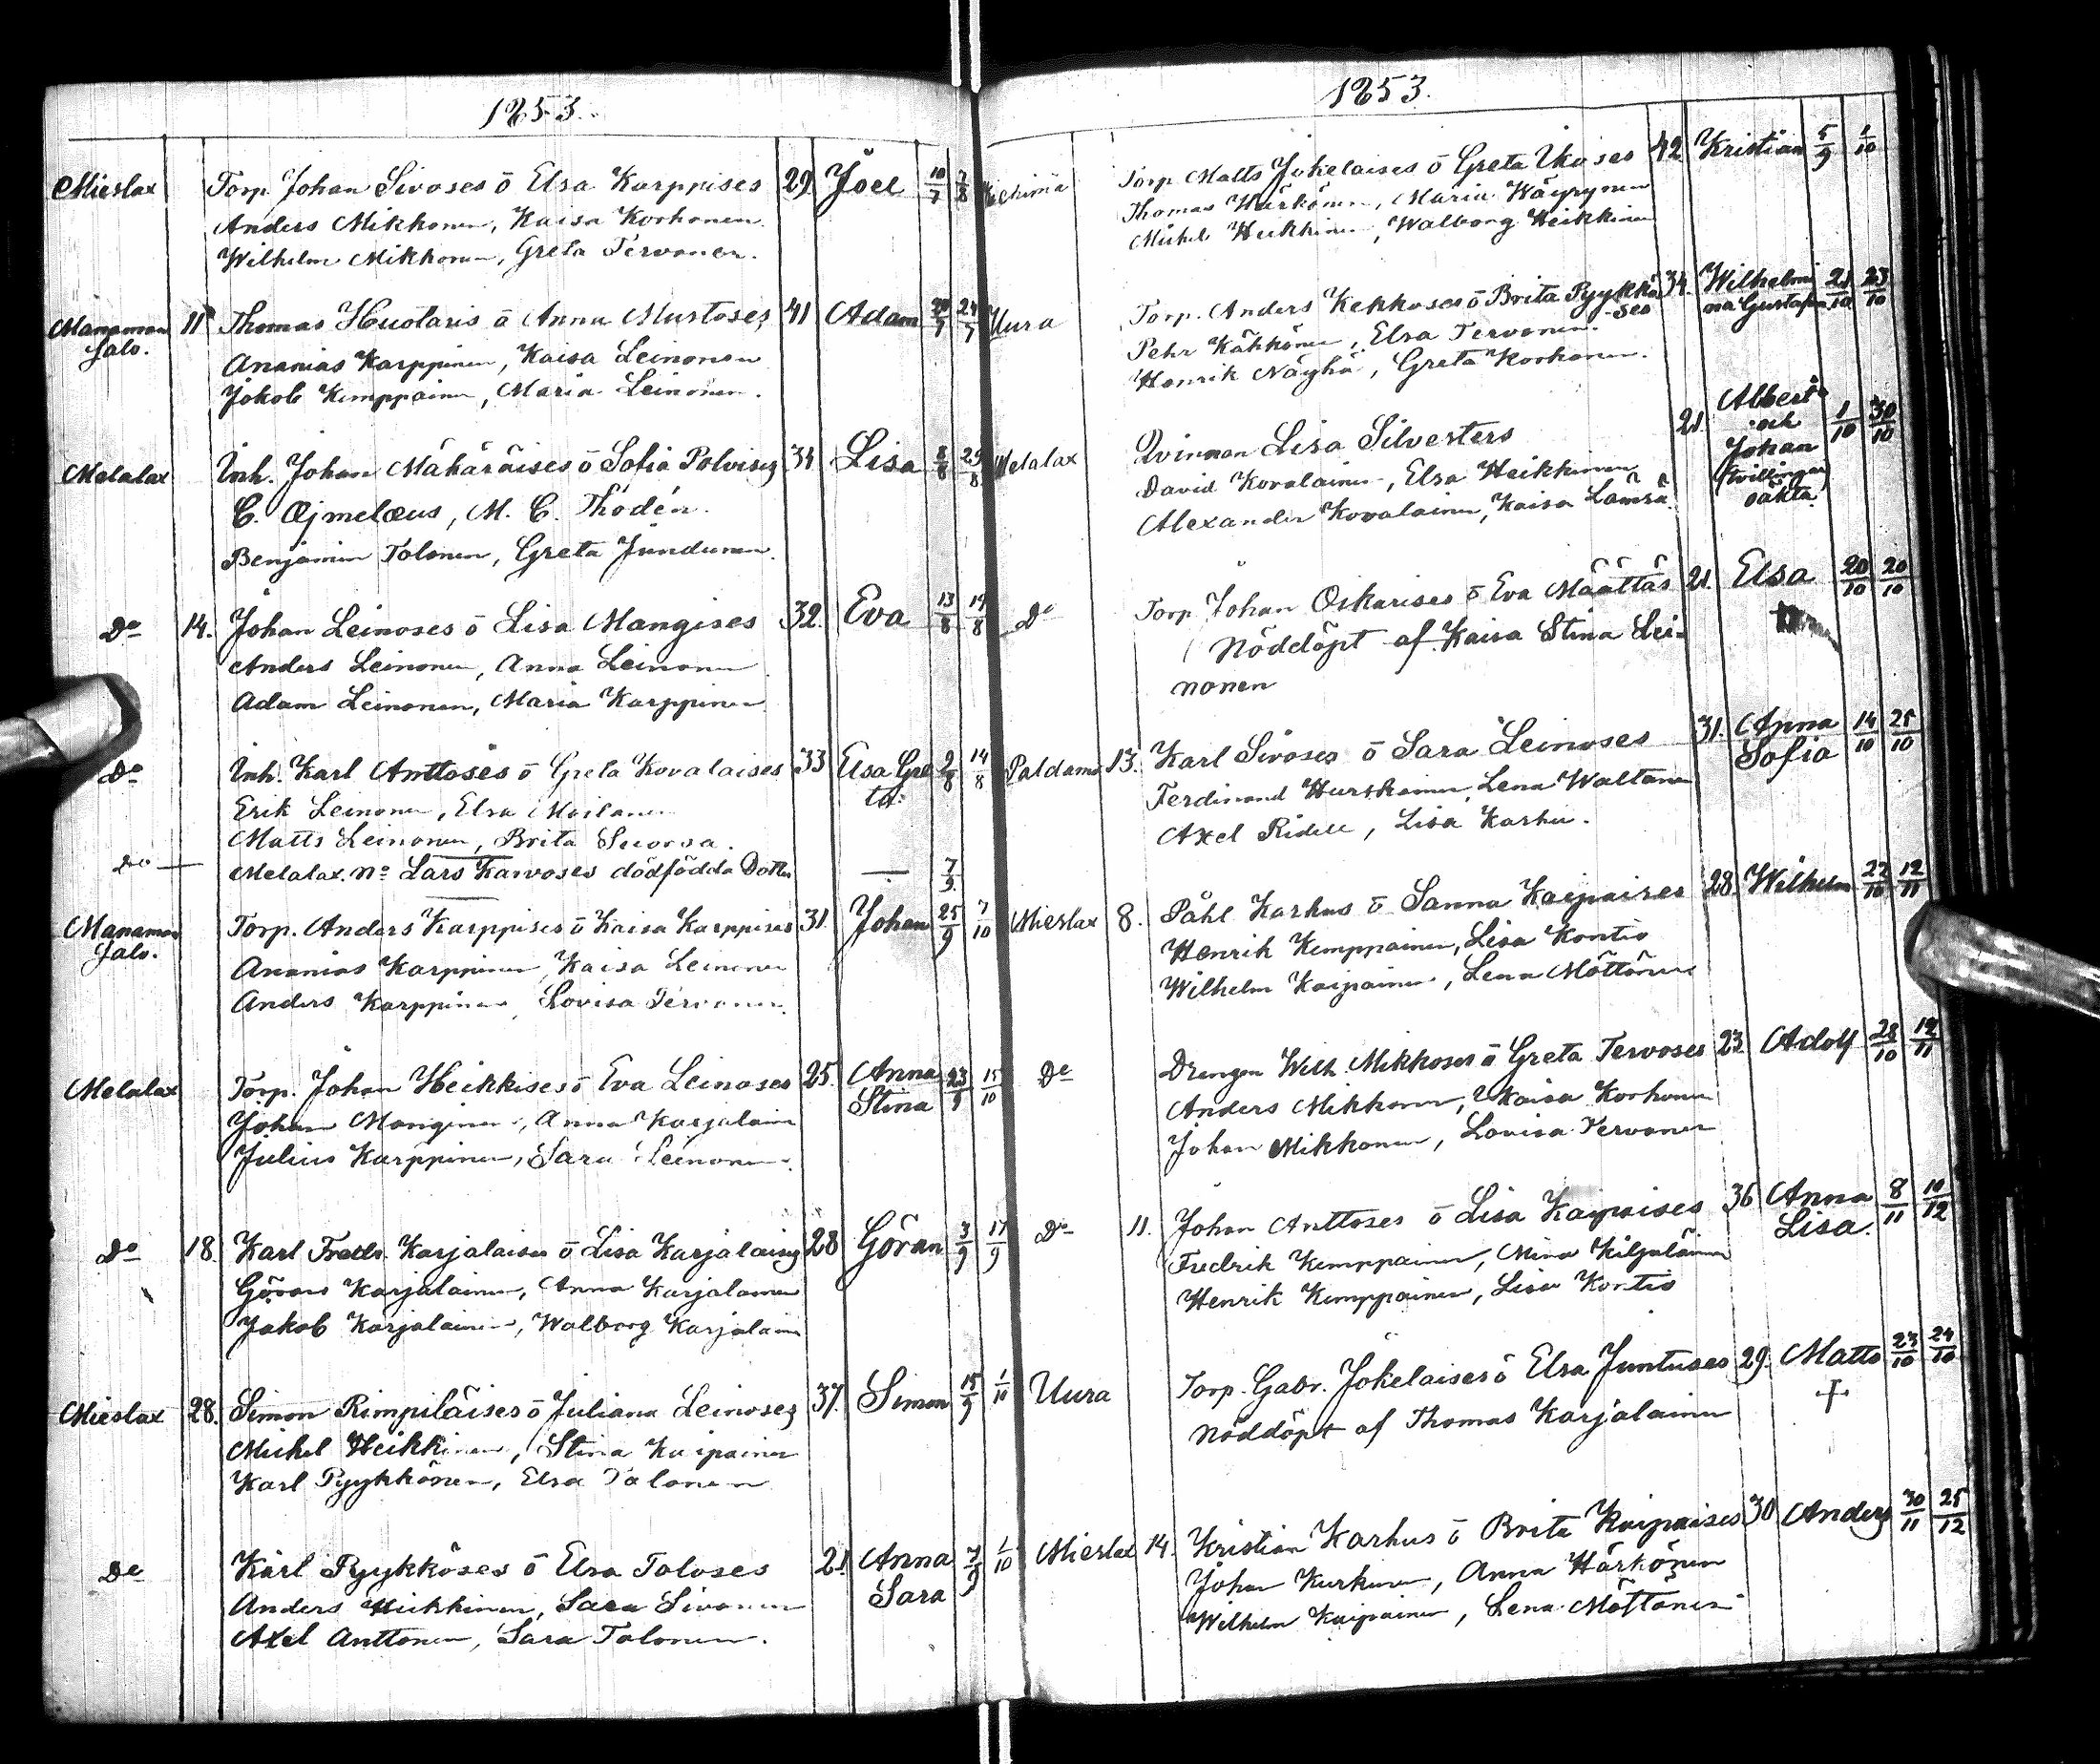 1853.
Mieslax Torp. Johan Sivoses ö Elsa Karppises 29. Joel 10/7 7/8
Anders Mikkonen, Kaisa Korhonen.
Wilhelm Mikkonen, Greta Tervonen.
Manamon 11 Thomas Huotaris ö Anna Murtoses 41 Adam 24/7
Salo. Ananias Karppinen, Kaisa Leinonen
Jakob Kemppainen, Maria Leinonen.
Melalax Inh. Johan Mähäräises ö Sofia Polvises 34 Lisa 8/8 29/8
C. Ajmelæus, M. C. Thodén.
Benjamin Tolonen, Greta Jundunen.
Do 14. Johan Leinoses ö Lisa Mangises 32. Eva 13/8 14/8
Anders Leinonen, Anna Leinonen
Adam Leinonen, Maria Karppinen
Do Inh. Karl Anttoses ö Greta Kovalaises 33 Elsa Gre 2/8 14/8
Erik Leinonen, Elsa Moilanen ta.
Matts Leinonen, Brita Suorsa.
Do — Melalax. No Lars Karvoses dödfödda Dotter — 7/9
Manamon Torp. Anders Karppises ö Kaisa Karppises 31. Johan 25/9 7/10
Salo. Ananias Karppinen, Kaisa Leinonen
Anders Karppinen, Lovisa Tervonen.
Melalax Torp. Johan Heikkises ö Eva Leinoses 25. Anna 23/9 15/10
Johan Manginen, Anna Karjalainen Stina
Julius Karppinen, Sara Leinonen.
Do 18. Karl Fredr. Karjalaises ö Lisa Karjalaises 28 Göran 3/9 17/9
Göran Karjalainen, Anna Karjalainen
Jakob Karjalainen, Walborg Karjalainen
Mieslax 28. Simon Rimpiläises ö Juliana Leinoses 37. Simon 15/9 1/10
Michel Heikkinen, Stina Kaipainen
Karl Pyykkönen, Elsa Tolonen
Do Karl Pyykköses ö Elsa Toloses 21 Anna 7/9 1/10
Anders Heikkinen, Sara Sivonen Sara
Axel Anttonen, Sara Tolonen.
1853.
Torp. Matts Jokelaises ö Greta Ukoses 42 Kristian 5/9 1/10
Thomas Härkönen, Maria Wäyrynen
Michel Heikkinen, Walborg Heikkinen
Uura Torp. Anders Kekkoses ö Brita Pyykkö 34. Wilhelmi 21/10 23/10
-ses na Gustafva
Pehr Käkkönen, Elsa Tervonen.
Henrik Näyhä, Greta Korhonen.
Melalax Qvinnan Lisa Silvesters 21. Albert 1/10 30/10
och
David Kovalainen, Elsa Heikkinen Johan
Alexander Kovalainen, Kaisa Lämsä. (tvillingar)
oäkta.
Do Torp Johan Oskarises ö Eva Määttäs 21. Elsa 20/10 20/10
Nöddöpt af Kaisa Stina Lei-
nonen
Paldamo 13. Karl Sivoses ö Sara Leinoses 31. Anna 14/10 25/10
Ferdinand Hurskainen, Lena Waltanen Sofia
Axel Ridell, Lisa Karhu.
Mieslax 8. Påhl Karhus ö Sanna Kaipaises 28. Wilhelm 22/10 12/11
Henrik Kemppainen, Lisa Kontio
Wilhelm Kaipainen, Lena Möttönen
Do Drengen Wilh. Mikkoses ö Greta Tervoses 23 Adolf 28/10 12/11
Anders Mikkonen, Kaisa Korhonen
Johan Mikkonen, Lovisa Tervonen
Do 11. Johan Anttoses ö Lisa Kaipaises 36 Anna 8/11 10/12
Fredrik Kemppainen, Mina Kiljaläinen Lisa.
Henrik Kemppainen, Lisa Kontio
Uura Torp. Gabr. Jokelaises ö Elsa Juntuses 29. Matts 23/10 24/10
Nöddöpt af Thomas Karjalainen +
Mieslax 14. Kristian Karhus ö Brita Kaipaises 30 Anders 30/11 25/12
Johan Kurkinen, Anna Härkönen
Wilhelm Kaipainen, Lena Möttönen